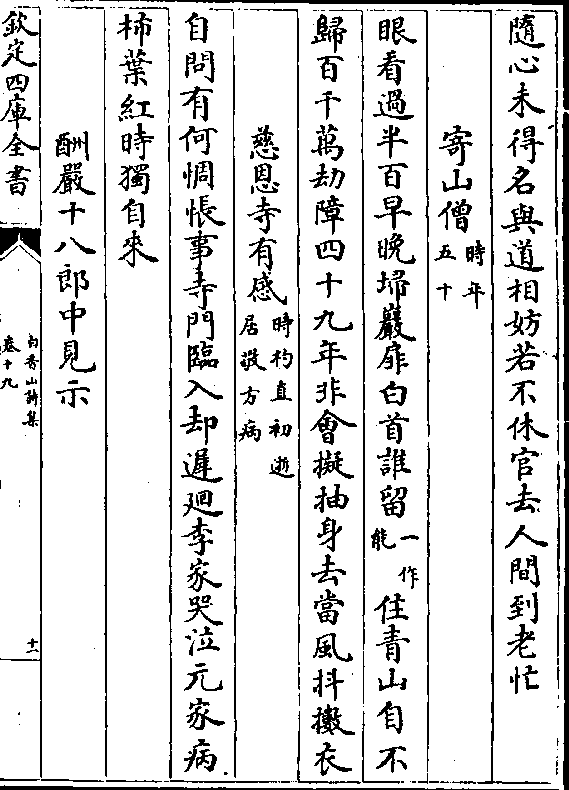 隨心未得名與道相妨若不休官去人間到老忙
寄山僧時年五十
眼看過半百早晚埽巖扉白首誰留一作能住青山自不
歸百千萬劫障四十九年非會擬抽身去當風抖擻衣
慈恩寺有感時杓直初逝居敬方病
自問有何惆悵事寺門臨入却遲廻李家哭泣元家病
柿葉紅時獨自來
酬嚴十八郎中見示
欽定四庫全書
白香山詩集
卷十九
十一